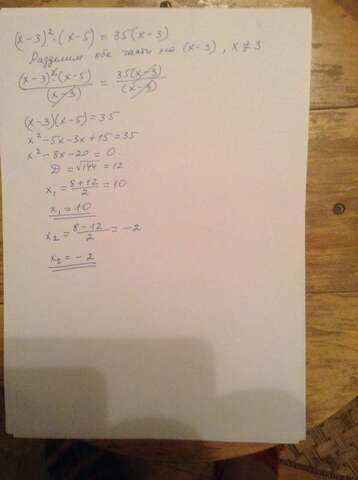 (x-3)²·(x-5) = 35(x-3)
Разделим обе части на (x-3), x≠3
(x-3)²(x-5)/(x-3) = 35(x-3)/(x-3)
(x-3)(x-5)=35
x²-5x-3x+15=35
x²-8x-20=0
D=√144=12
x₁=8+12/2=10
x₁=10
x₂=8-12/2=-2
x₂=-2